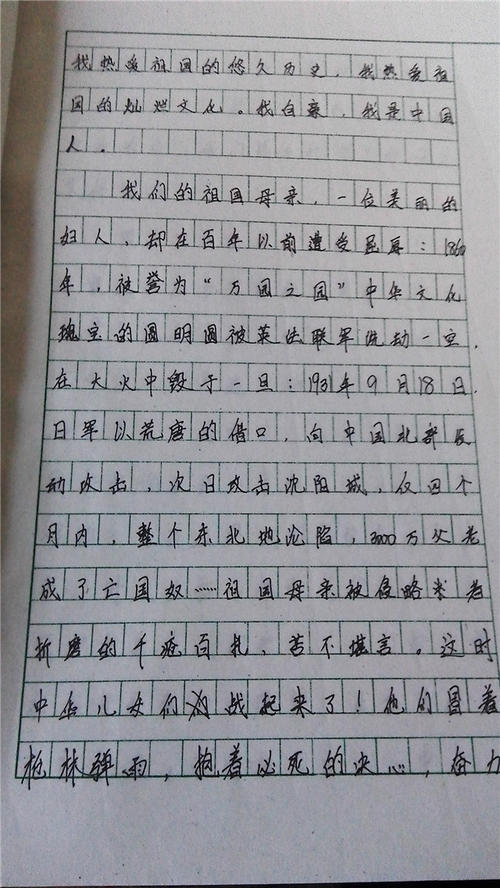 我热爱祖国的悠久历史，我热爱祖
国的灿烂文化。我自豪，我是中国
人。
我们的祖国母亲，一位美丽的
妇人，却在百年以前遭受屈辱：1860
年，被誉为“万园之园”中华文化
瑰宝的圆明园被英法联军洗劫一空，
在大火中毁于一旦；1931年9月18日，
日军以荒唐的借口，向中国北部发
动攻击，次日攻击沈阳城，仅四个
月内，整个东北地沦陷，3000万父老
成了亡国奴……祖国母亲被侵略者
折磨的千疮百孔、苦不堪言。这时
中华儿女们战起来了！他们冒着
枪林弹雨，抱着必死的决心，奋力